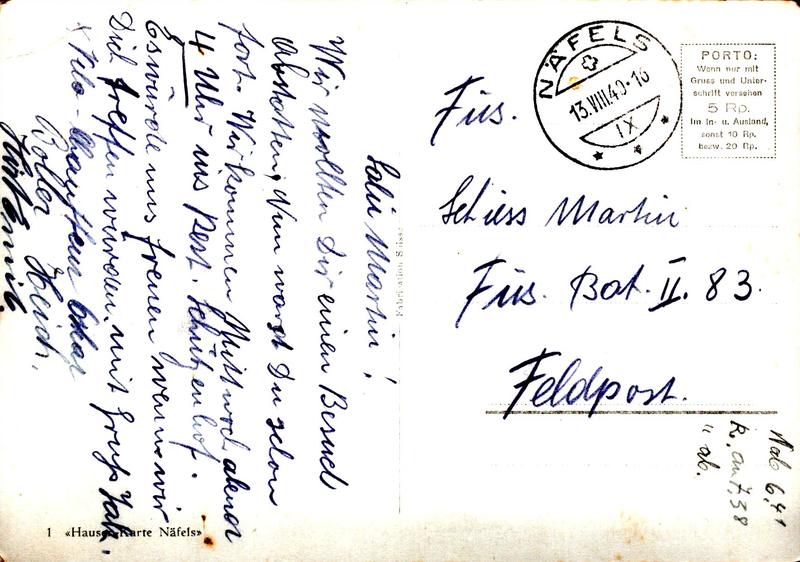 Salü Martin!
Wir wollten Dir einen Besuch
abstatten, Nun warst Du schon
fort. Wir kommen Mittwoch abend
4 Uhr ins Rest. Schützenhof.
Es würde uns freuen wenn wir
Dich treffen würden. mit Gruss Jak.
Velo-Chauffeur Oskar
NÄFELS
13.VIII.40-16
IX
PORTO:
Wenn nur mit
Gruss und Unter-
schrift versehen
5 Rp.
im In- u. Ausland,
sonst 10 Rp.
bezw. 20 Rp.
Füs.
Schiess Martin
Füs. Bat. II. 83.
Feldpost.
Näf. 6,41
R. an 7,38
" ab.
Fabrication Suisse
1 «Hauser-Karte Näfels»